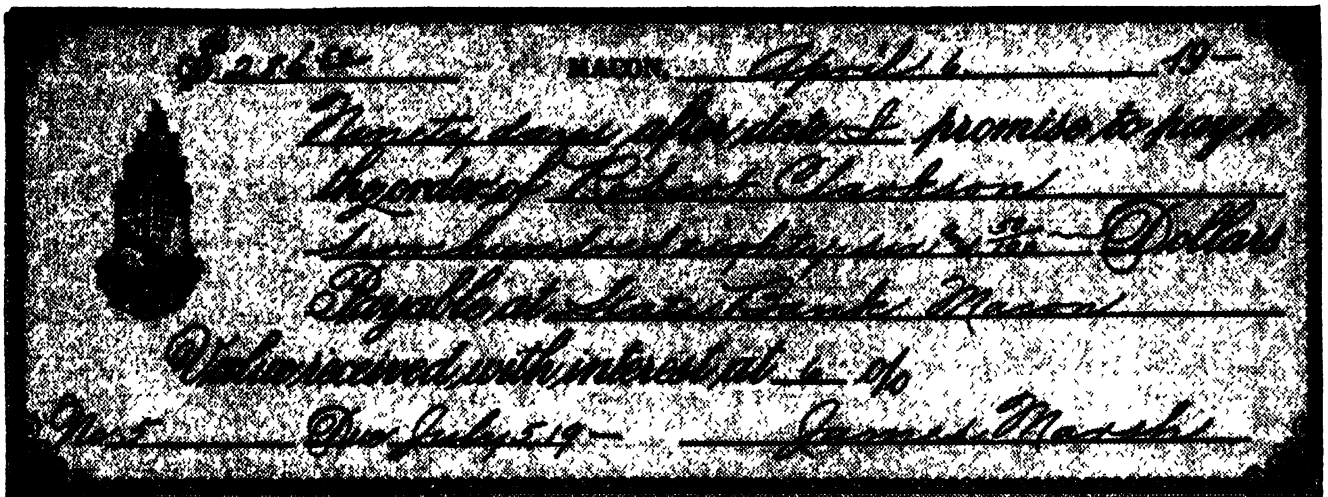 $286 50/100 MACON, April 6 19—
Ninety days after date I promise to pay to
the order of Robert Clarkson
Two hundred eighty six & 50/100 Dollars
Payable at State Bank Macon
Value received with interest at 6 %
No. 5 Due July 5 19— James Marsh